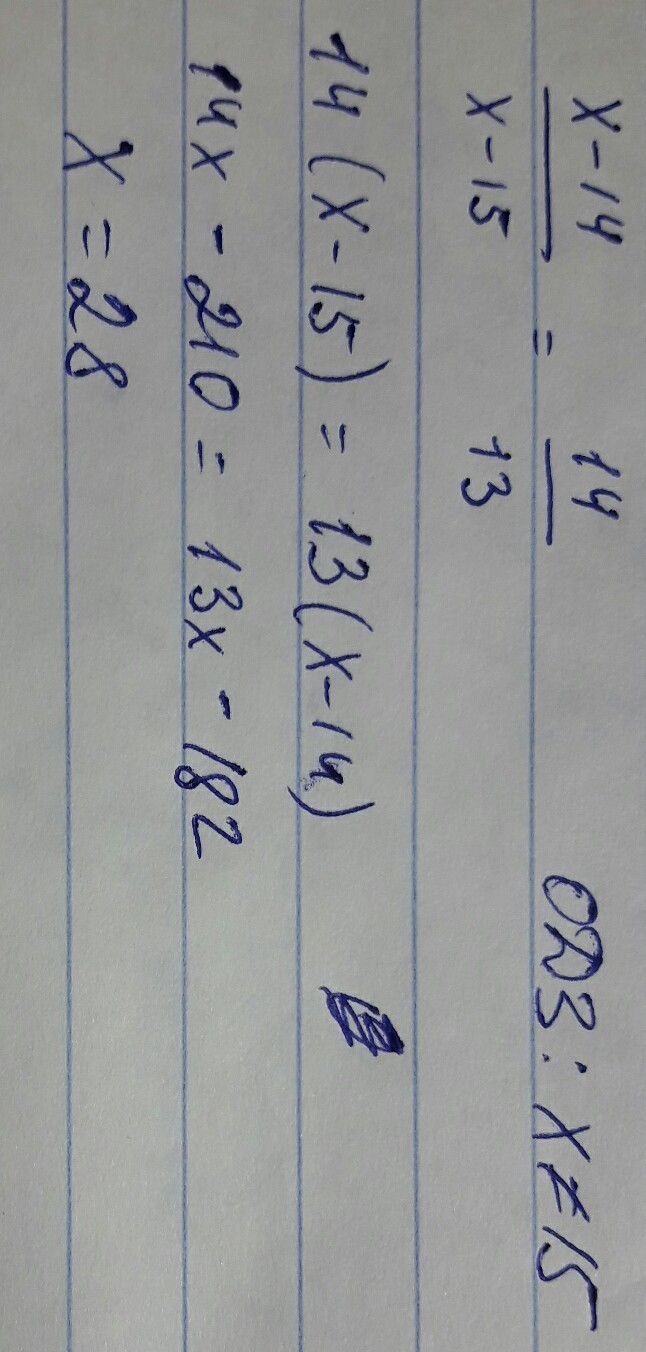 x-14 / x-15 = 14 / 13 ОДЗ: x≠15
14(x-15) = 13(x-14)
14x - 210 = 13x - 182
x = 28